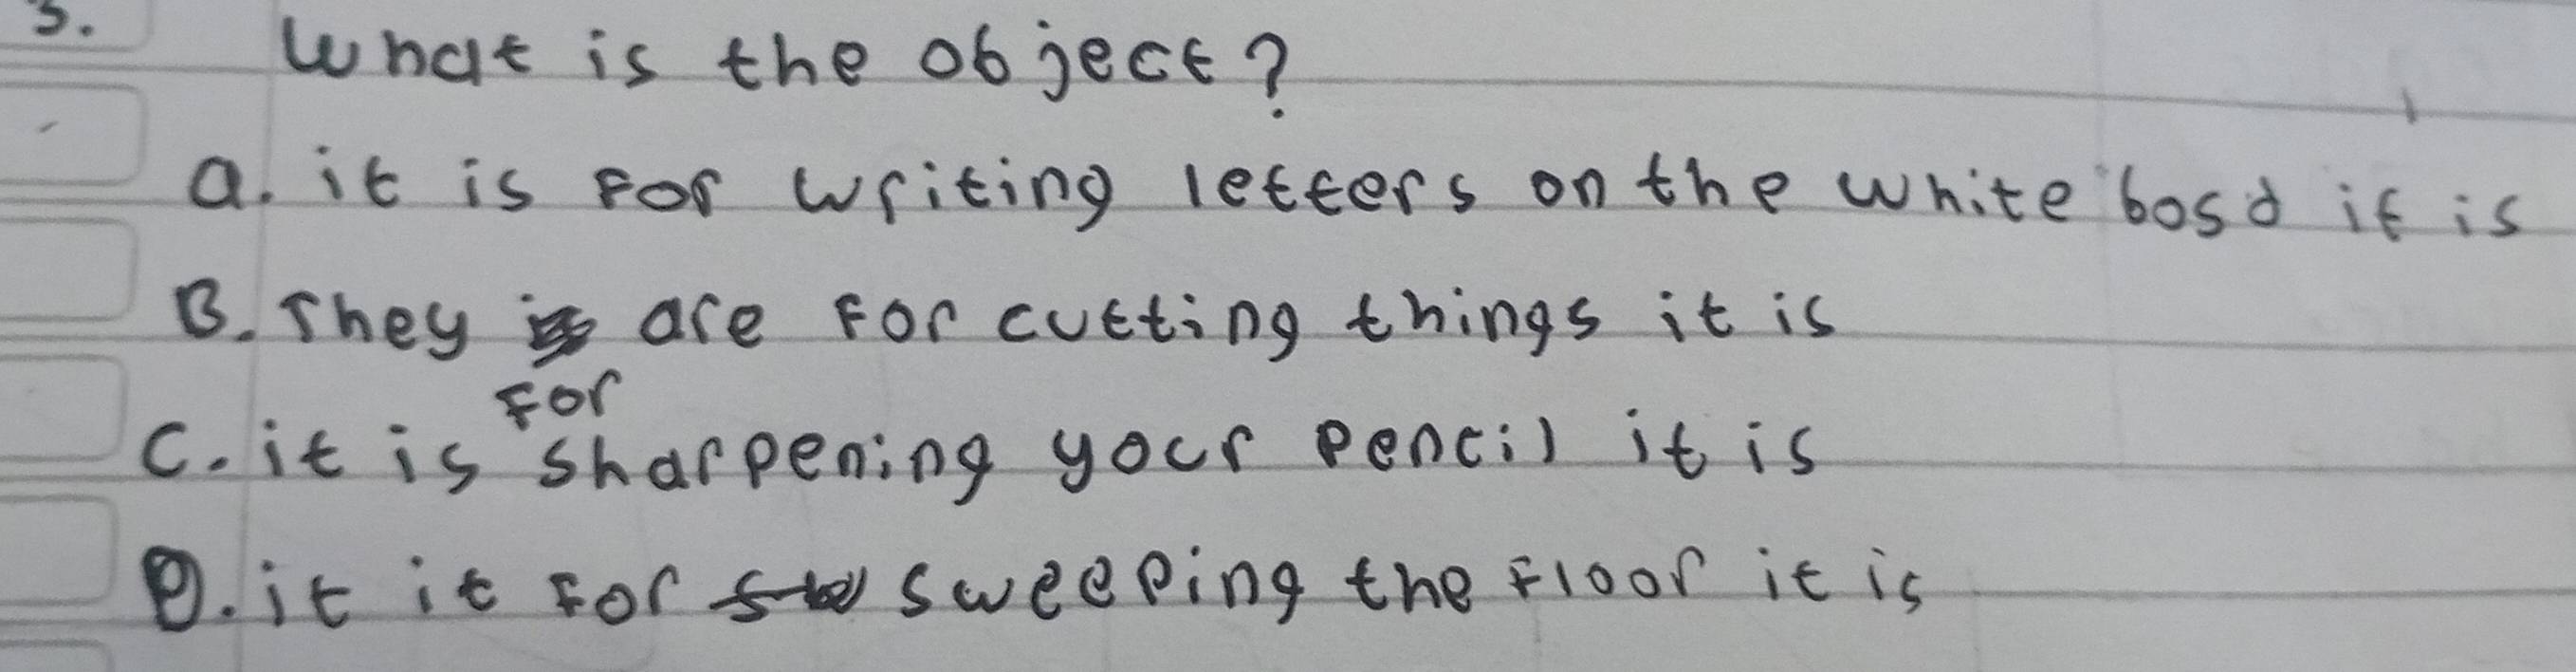 3. What is the object?
a. it is For writing letters on the white bosd it is
B. They are For cutting things it is
For
C. it is sharpening your pencil it is
D. it it For sweeping the Floor it is